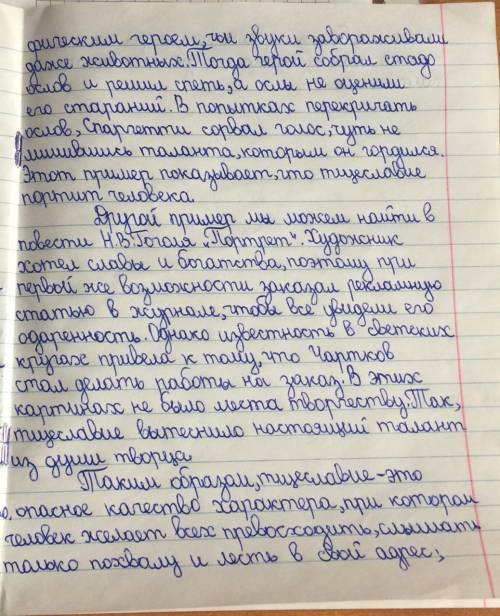 фическим героем, чьи звуки завораживали
даже животных. Тогда герой собрал стадо
ослов и решил спеть, а ослы не оценили
его стараний. В попытках перекричать
ослов, Спаргетти сорвал голос, чуть не
лишившись таланта, которым он гордился.
Этот пример показывает, что тщеславие
портит человека.
Другой пример мы можем найти в
повести Н.В. Гоголя "Портрет". Художник
хотел славы и богатства, поэтому при
первой же возможности заказал рекламную
статью в журнале, чтобы все увидели его
одаренность. Однако известность в светских
кругах привела к тому, что Чартков
стал делать работы на заказ. В этих
картинах не было места творчеству. Так,
тщеславие вытеснило настоящий талант
из души творца.
Таким образом, тщеславие - это
опасное качество характера, при котором
человек желает всех превосходить, слышать
только похвалу и лесть в свой адрес;